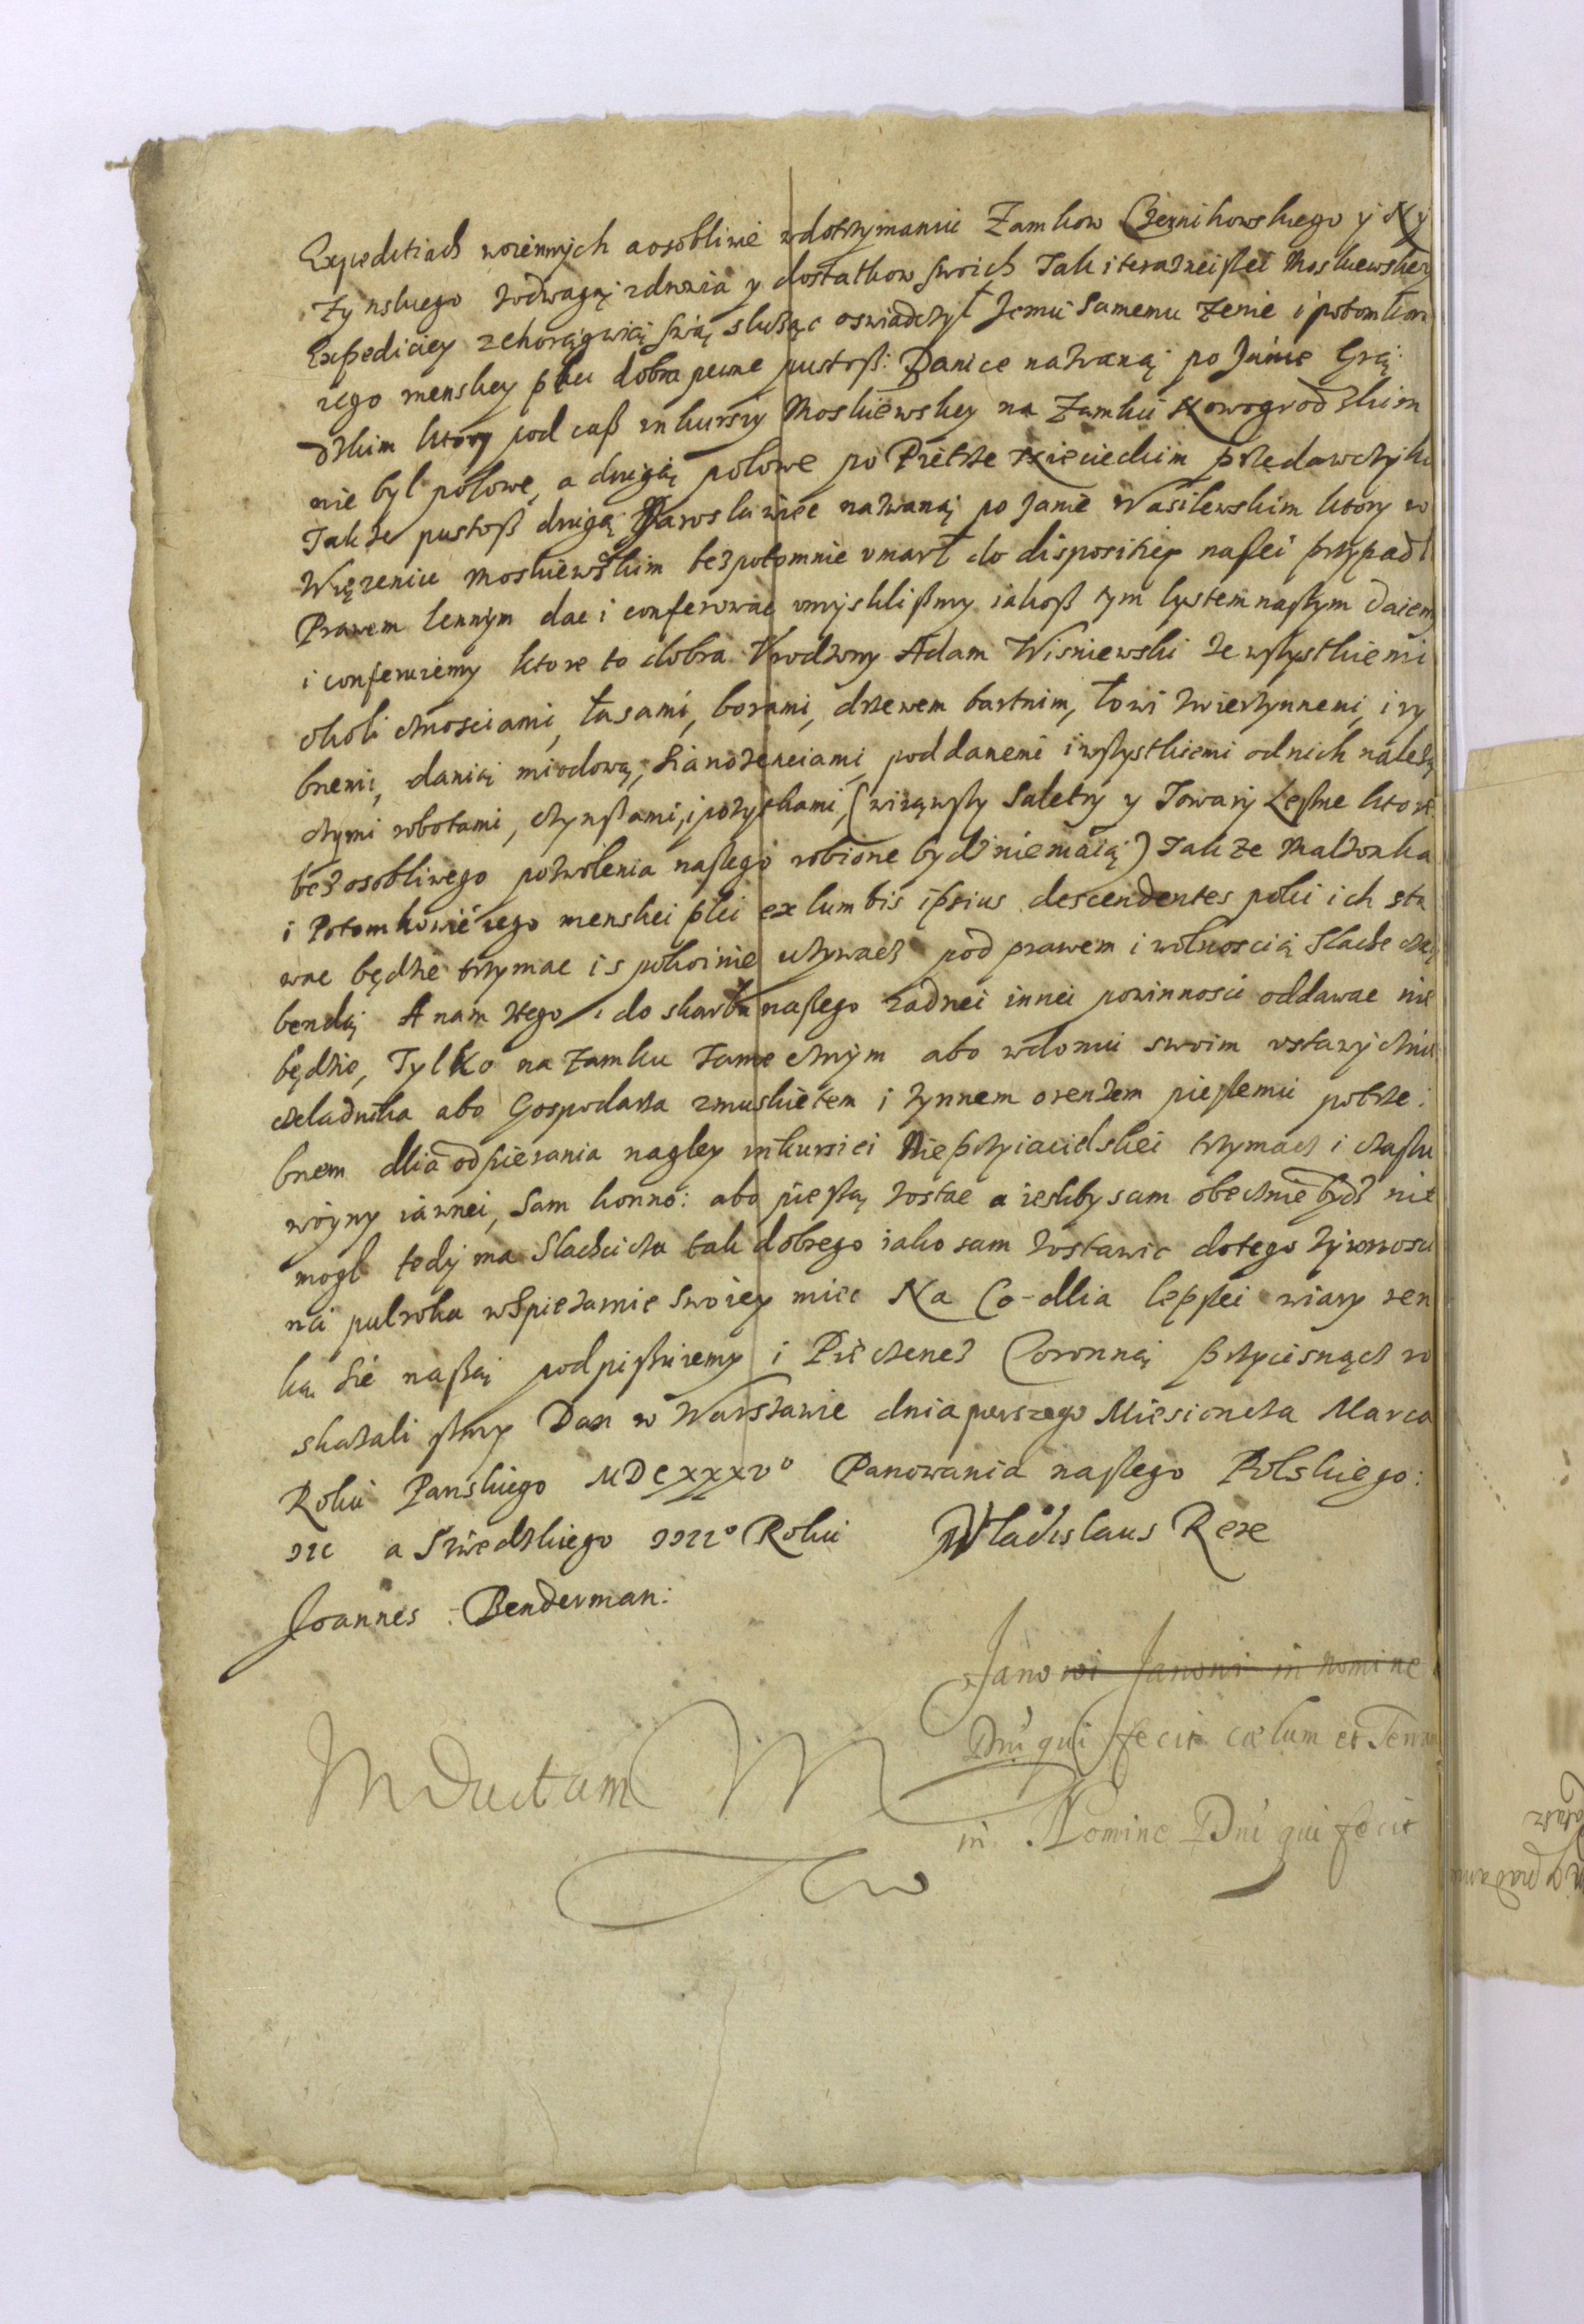 Expeditiach woiennych a osobliwie w dotrzymaniu Zamkow Czernihowskiego y Ny
zynskiego z odwagą zdrowia y dostatkow swoich Tak i terazneißei Moskiewskey
Expediciey z chorągwią swą służąc oswiadczył Jemu Samemu Zenie i potomkom
iego menskey płci dobra pewne pustoß: Danice nazwaną po Janie Grą
dzkim ktory pod caß inkursiy Moskiewskey na Zamku Nowogrodzkim
nie był połowe, a drugą połowe po Pietrze przedawczyku
Takze pustoß drugą Jarosławice nazwaną po Janie Wasilewskim ktory w
Więzeniu Moskiewskim bezpotomnie umarł do dispositiey naßei przypadł
Prawem lennym dac i conferowac umyslilißmy iakoß tym lystem naßym daiem
i conferuiemy ktore to dobra Urodzony Adam Wisniewski ze wßystkiemi
okolicznosciami, lasami, borami, drzewem bartnim, łowi zwierzynnemi, i ry
bnemi, danią miodową, sianozenciami, poddanemi i wßystkiemi od nich należą
czymi robotami, czynßami, i pożytkami, (wiząwßy Saletry y Towary Leßne ktore
bez osobliwego pozwolenia naßego robione bydz nie maią) Takze Malzonka
i Potomkowie iego menskei płci ex lumbis ipsius descendentes poki ich sta
wac będzie trzymac i spokoinie uzywacz pod prawem i wolnoscią Slachecką
bendą A nam z tego i do skarbu naßego zadnei innei powinnosci oddawac nie
będzie, Tylko na Zamku Tamecznym abo w domu swoim ustawycznie
czeladnika abo Gospodarza z muskietem i zynnem orenzem pießemu potrze:
bnem dlia odpierania nagley inkursiei Nieprzyiacielskei trzymacz i czaßu
woyny iawnei, Sam konno: abo pießą zostac a iesliby sam obecznie bydz nie
mogl tedy ma Slachcicza tak dobrego iako sam zostawic do tego zywnosci
na pulroka w Spizarnie swoiey miec Na Co dlia lepßei wiary ren
ką Sie naßą podpißuiemy i Pieczenez Coronną przycisnącz ro
skazali ßmy Dan w Warszawie dnia perszego Miesioncza Marca
Roku Panskiego MDCXXXVº Panowania naßego Polskiego:
III a Szwedzkiego IIIIº Roku Wladislaus Rex
Joannes Benderman:
Janowi Janowi in nomine
Dni qui fecit cœlum et Terram
Inductum
in Nomine Dni qui fecit